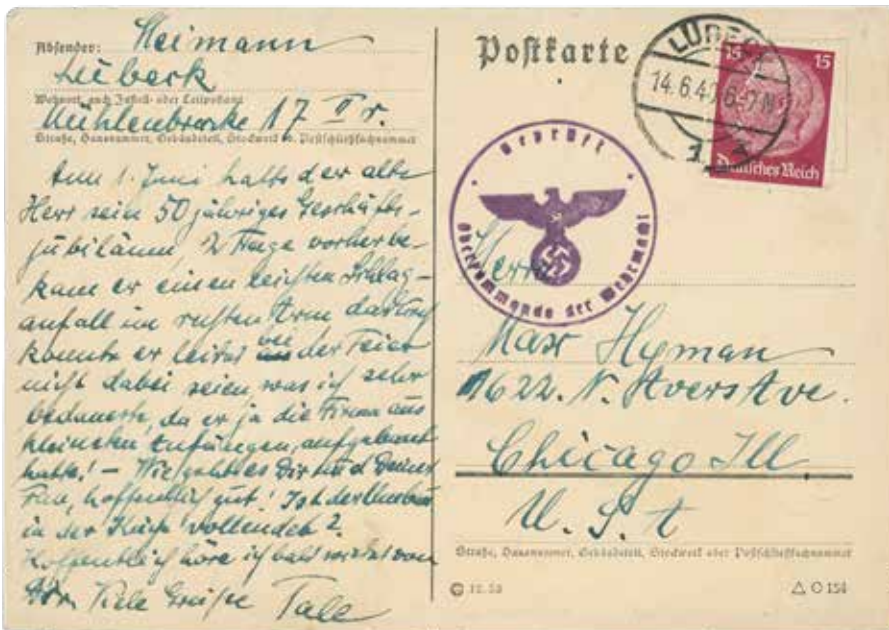 Absender: Heimann
Lübeck
Wohnort, auch Zustell- oder Leitpostamt
Mühlenbrücke 17 II r.
Straße, Hausnummer, Gebäudeteil, Stockwerk od. Postschließfachnummer
Am 1. Juni hatte der alte
Herr sein 50 jähriges Geschäfts-
jubiläum 2 Tage vorher be-
kam er einen leichten Schlag-
anfall im rechten Arm dadurch
konnte er leider bei der Feier
nicht dabei seien, was ich sehr
bedauerte, da er ja die Firma aus
kleinsten Anfängen, aufgebaut
hatte! – Wie geht es Dir und Deiner
hoffentlich gut! Ist der Umbau
in der Küche vollendet?
Hoffentlich höre ich bald von
Dir. Viele Grüße
Postkarte
LÜBECK
14.6.4 6-7N
1
15 15
Deutsches Reich
Geprüft
Oberkommando der Wehrmacht
Herrn
Max Hyman
1622. N. Avers Ave.
Chicago Ill
U. S. A
Straße, Hausnummer, Gebäudeteil, Stockwerk oder Postschließfachnummer
C 154